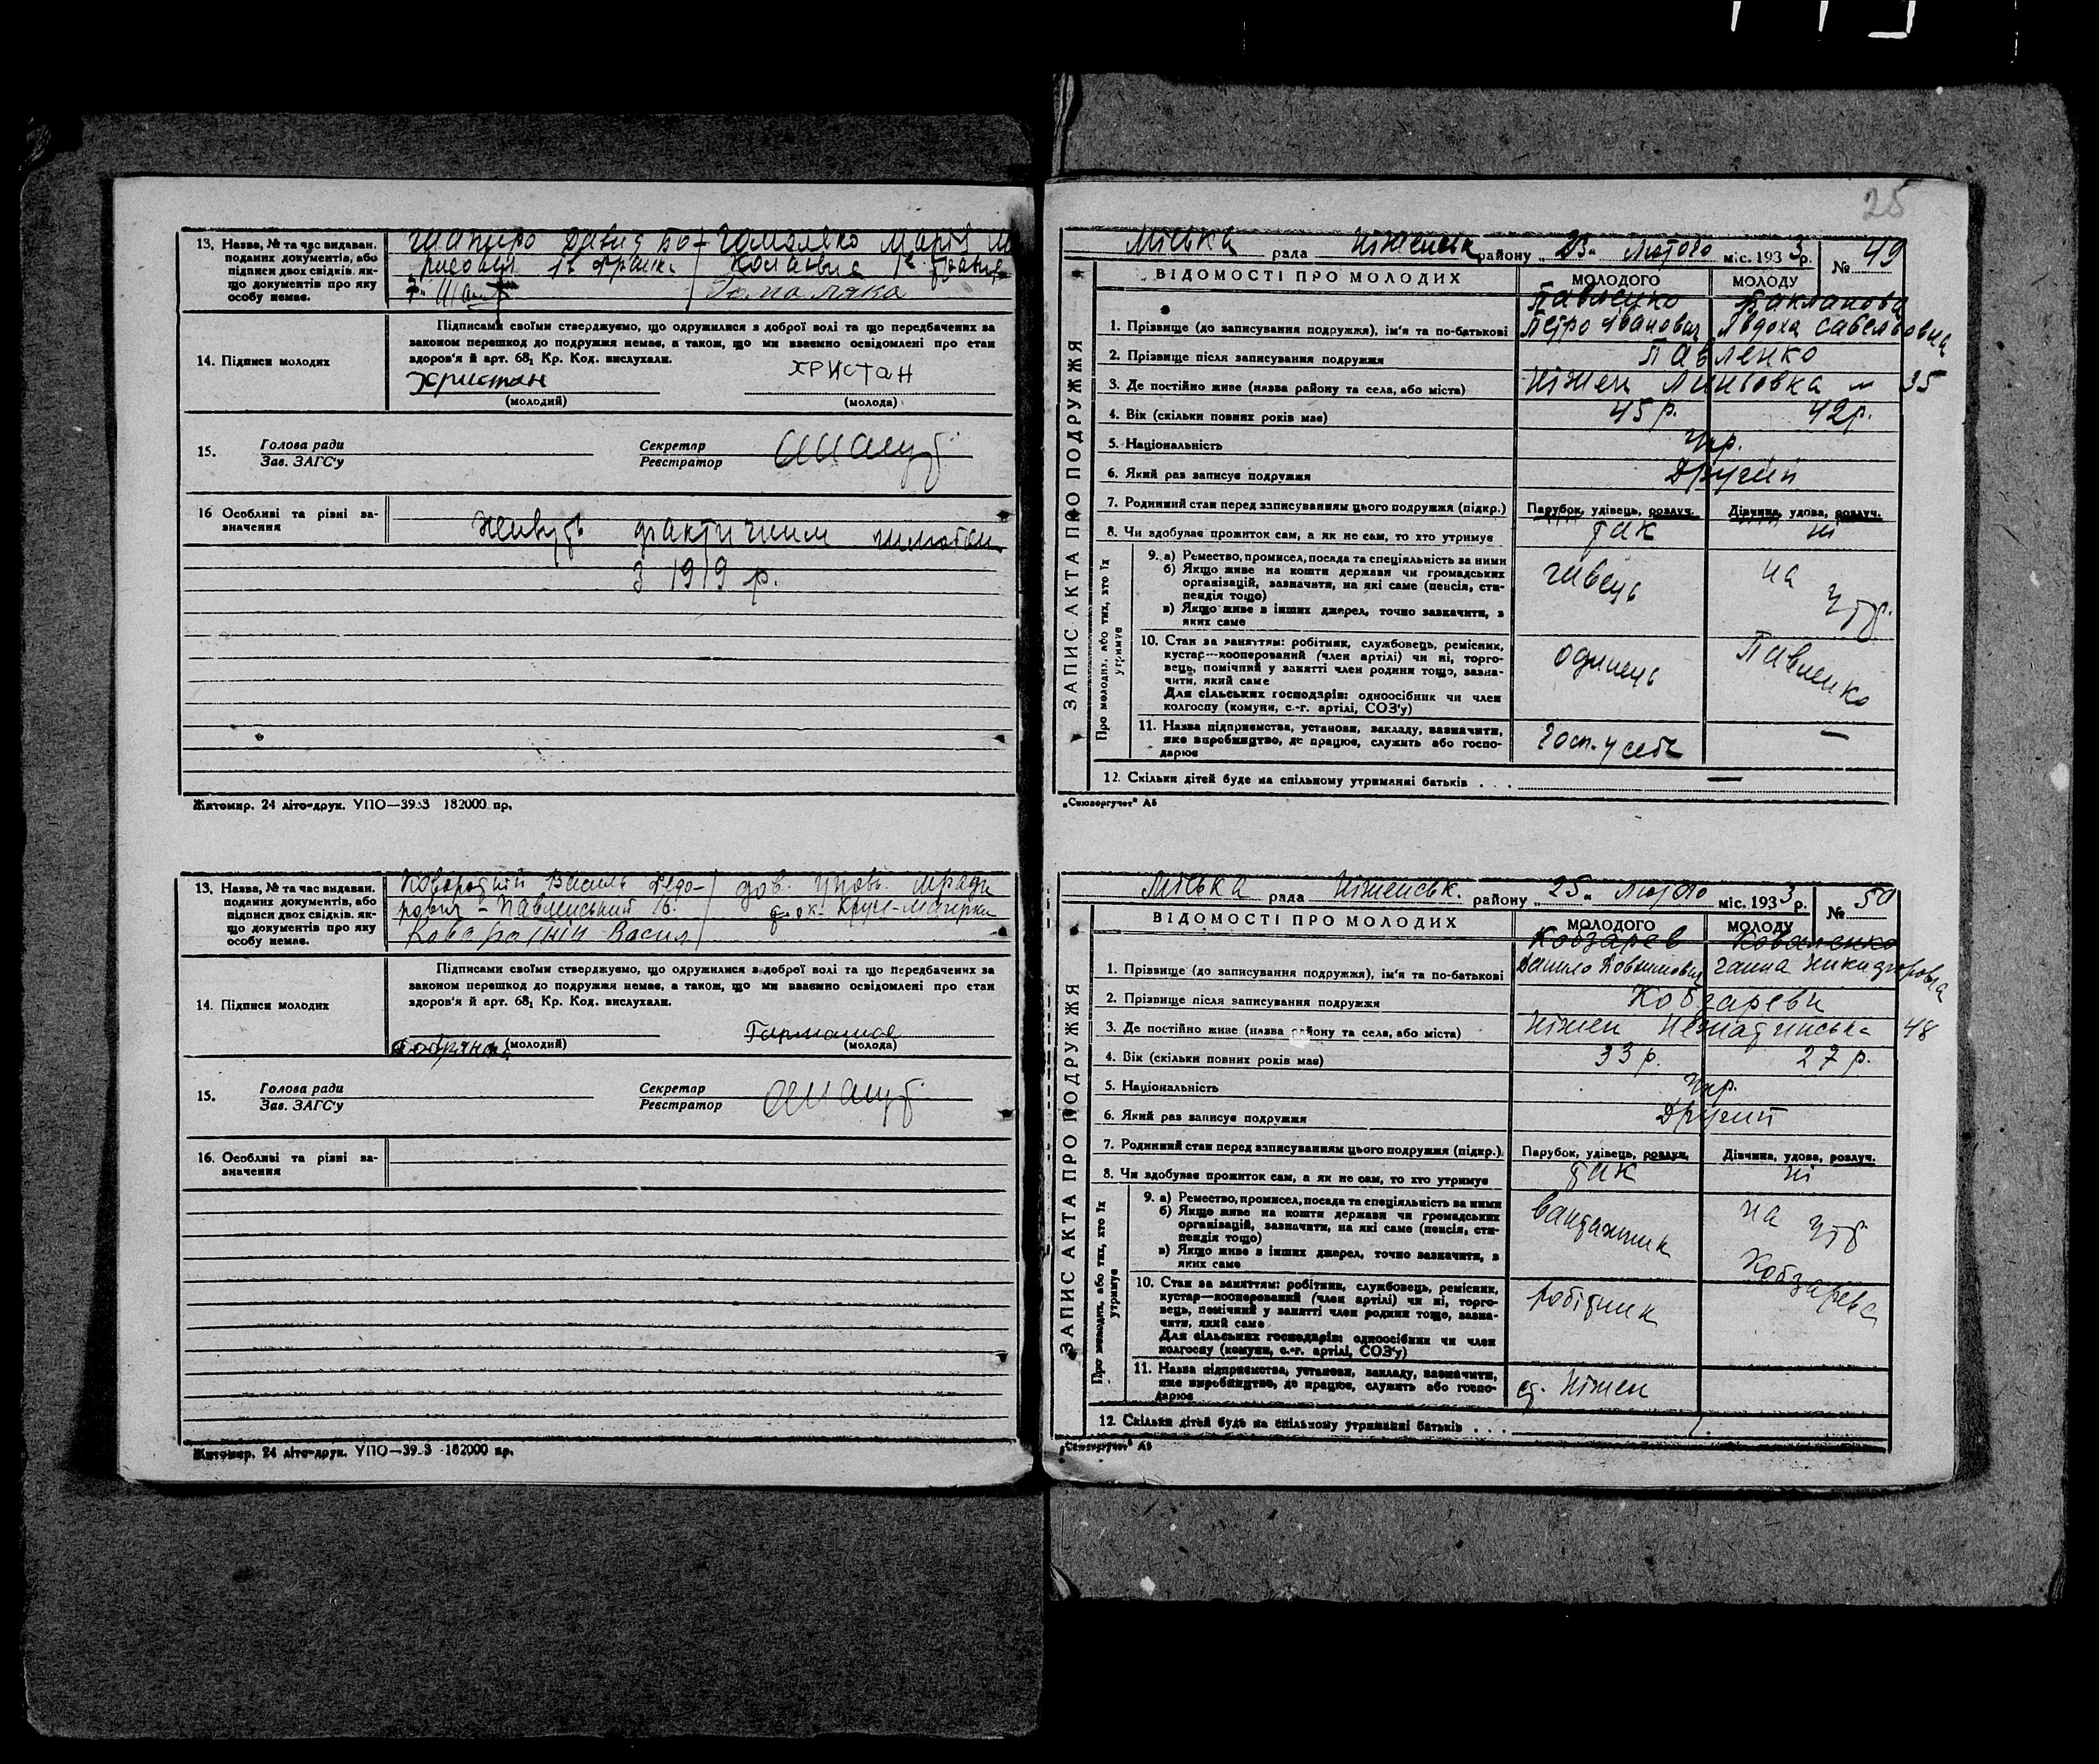 13. Назва, № та час видаван. поданих документів, або підписи двох свідків, якщо документів про яку особу немає.
Шапиро Давид Бо-
14. Підписи молодих
Підписами своїми стверджуємо, що одружилися з доброї волі та що передбачених за
законом перешкод до подружжя немає, а також, що ми взаємно освідомлені про стан
здоров'я й арт. 68, Кр. Код. вислухали.
Христан ХРИСТАН
(молодий) (молода)
15. Голова ради Секретар
Зав. ЗАГС'у Реєстратор
16 Особливі та різні зазначення
Живуть фактичним
з 1919 р.
Житомир. 24 літо-друк. УПО—3933 182000 пр.
13. Назва, № та час видаван. поданих документів, або підписи двох свідків, якщо документів про яку особу немає.
Василь Федо-
рович
14. Підписи молодих
Підписами своїми стверджуємо, що одружилися з доброї волі та що передбачених за
законом перешкод до подружжя немає, а також, що ми взаємно освідомлені про стан
здоров'я й арт. 68, Кр. Код. вислухали.
(молодий) (молода)
15. Голова ради Секретар
Зав. ЗАГС'у Реєстратор
16. Особливі та різні зазначення
Житомир. 24 літо-друк. УПО—3933 182000 пр.
25
Міська рада Ніженськ району „23„ Лютого міс. 1933р. № 49
ЗАПИС АКТА ПРО ПОДРУЖЖЯ
ВІДОМОСТІ ПРО МОЛОДИХ МОЛОДОГО МОЛОДУ
Павленко Бакланова
1. Прізвище (до записування подружжя), ім'я та по-батькові Петро Іванович Явдоха Савельовна
2. Прізвище після записування подружжя Павленко
3. Де постійно живе (назва району та села, або міста) Ніжен 35
4. Вік (скільки повних років має) 45 р. 42 р.
5. Національність Укр.
6. Який раз записує подружжя Другий
7. Родинний стан перед записуванням цього подружжя (підкр.) Парубок, удівець, розлуч. Дівчина, удова, розлуч.
8. Чи здобуває прожиток сам, а як не сам, то хто утримує так ні
Про молодих, або тих, хто їх утримує
9. а) Ремество, промисел, посада та спеціяльність за ними
б) Якщо живе на кошти держави чи громадських
організацій, зазначити, на які саме (пенсія, сти-
пендія тощо)
в) Якщо живе з інших джерел, точно зазначити, з
яких саме
на утр.
10. Стан за заняттям: робітник, службовець, ремісник,
кустар—кооперований (член артілі) чи ні, торго-
вець, помічний у занятті член родини тощо, зазна-
чити, який саме
Для сільських господарів: одноосібник чи член
колгоспу (комуни, с.-г. артілі, СОЗ'у)
одинець Павленко
11. Назва підприємства, установи, закладу, зазначити,
яке виробництво, де працює, служить або госпо-
дарює
госп. у себе —
12. Скільки дітей буде на спільному утриманні батьків . . . —
„Союзоргучет" А5
Міська рада Ніженськ. району „25„ Лютого міс. 1933р. № 50
ЗАПИС АКТА ПРО ПОДРУЖЖЯ
ВІДОМОСТІ ПРО МОЛОДИХ МОЛОДОГО МОЛОДУ
Кобзарев Коваленко
1. Прізвище (до записування подружжя), ім'я та по-батькові Данило Ганна Никифоровна
2. Прізвище після записування подружжя Кобзареви
3. Де постійно живе (назва району та села, або міста) Ніжен 48
4. Вік (скільки повних років має) 33 р. 27 р.
5. Національність Укр.
6. Який раз записує подружжя Другий
7. Родинний стан перед записуванням цього подружжя (підкр.) Парубок, удівець, розлуч. Дівчина, удова, розлуч.
8. Чи здобуває прожиток сам, а як не сам, то хто утримує так ні
Про молодих, або тих, хто їх утримує
9. а) Ремество, промисел, посада та спеціяльність за ними
б) Якщо живе на кошти держави чи громадських
організацій, зазначити, на які саме (пенсія, сти-
пендія тощо)
в) Якщо живе з інших джерел, точно зазначити, з
яких саме
вантажник на утр
10. Стан за заняттям: робітник, службовець, ремісник,
кустар—кооперований (член артілі) чи ні, торго-
вець, помічний у занятті член родини тощо, зазна-
чити, який саме
Для сільських господарів: одноосібник чи член
колгоспу (комуни, с.-г. артілі, СОЗ'у)
робітник Кобзарева
11. Назва підприємства, установи, закладу, зазначити,
яке виробництво, де працює, служить або госпо-
дарює
ст. Ніжен
12. Скільки дітей буде на спільному утриманні батьків . . .
„Союзоргучет" А5